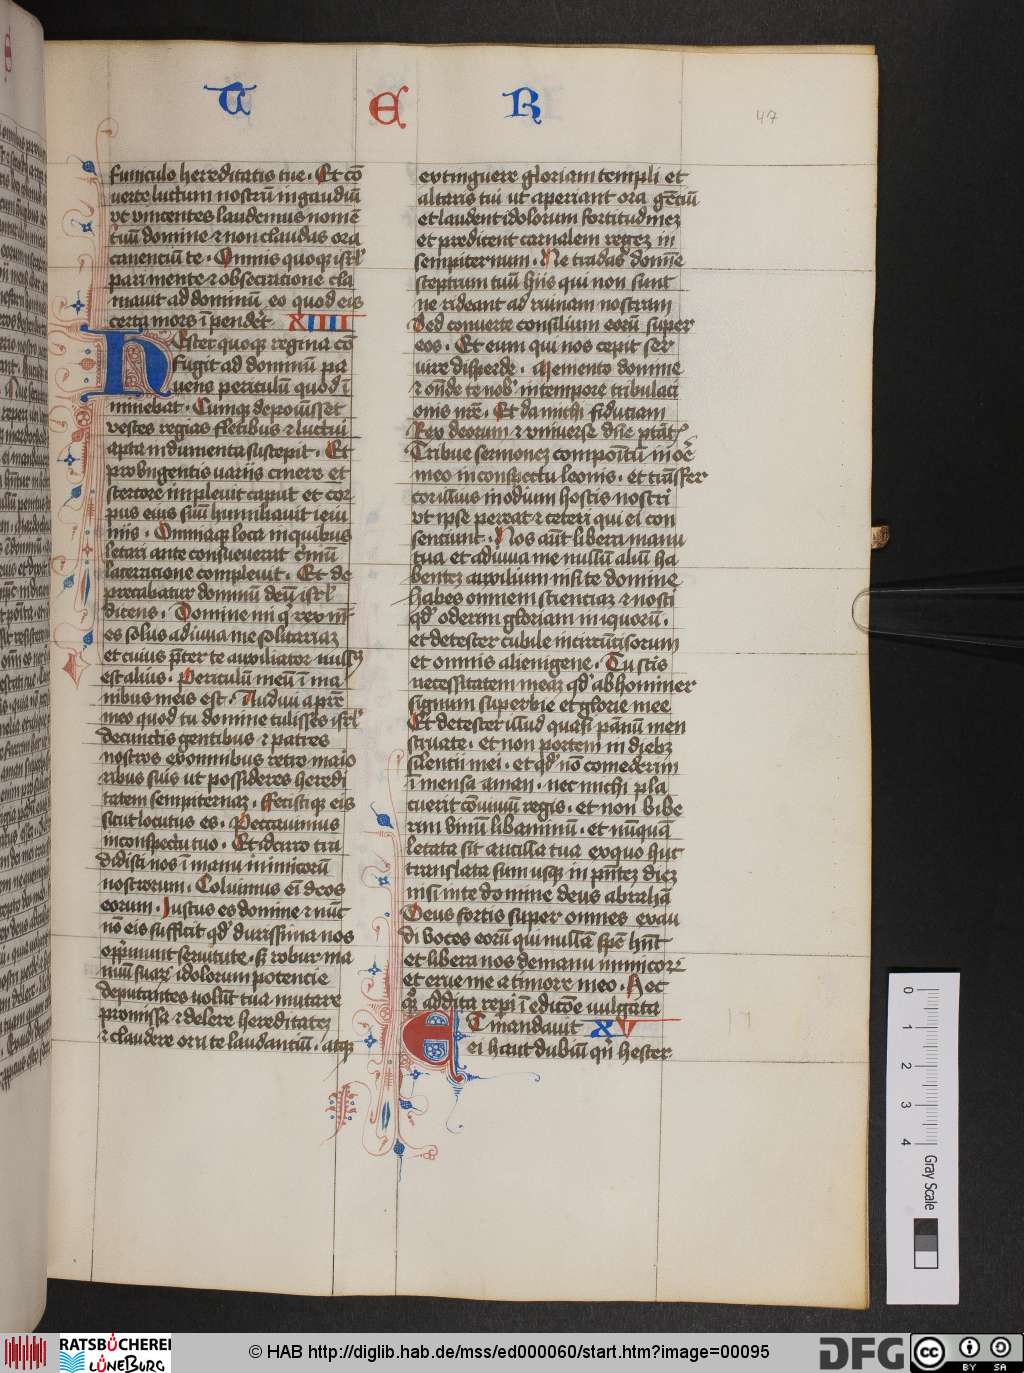 T E R
47
funiculo hereditatis tue . Et cō
verte luctum nostrū in gaudiū
vt viventes laudemus nomē
tuū domine et non claudas ora
canenciū te . Omnis quoque isrl
pari mente et obsecracione cla
mavit ad dominū eo quod eis
certa mors īpenderet XIIII
HEster quoque regina cō
fugit ad dominū pa
vens periculū quod ī
minebat . Cumque deposuisset
vestes regias fletibus et luctui
apta indumenta suscepit . Et
pro ungentis variis cinere et
stercore implevit caput et cor
pus eius suū humiliavit ieiu
niis . Omniaque loca in quibus
letari ante consueverat crīniū
laceracione complevit . Et de
precabatur dominū deū isrl
dicens . Domine mi qi rex nr̄
es solus adiuva me solitariam
et cuius preter te auxiliator nullus
est alius . Periculū meū ī ma
nibus meis est . Audivi a prē
meo quod tu domine tulisses isrl
de cunctis gentibus et patres
nostros ex omnibus retro maio
ribus suis ut possideres heredi
tatem sempiternam . ffecistique eis
sicut locutus es . Peccavimus
in conspectu tuo . Et idcirco tra
didisti nos ī manu inimicorū
nostrorum . Coluimus eī deos
eorum . Iustus es domine et nūc
nō eis sufficit qd durissima nos
opprimunt servitute . sed robur ma
nuū suarum idolorum potencie
deputantes volūt tua mutare
promissa et delere hereditatem
et claudere ora te laudantiū . atque
extinguere gloriam templi et
altaris tui ut aperiant ora gēciū
et laudent idolorum fortitudinem
et predicent carnalem regem in
sempiternum . Ne tradas domīe
sceptrum tuū hiis qui non sunt
ne rideant ad ruinam nostram
Sed converte consilium eorū super
eos . Et eum qui nos cepit ser
vire disperde . Memento domine
et onde te nob in tempore tribulaci
onis nrē . Et da michi fiduciam
Rex deorum et universe dnē ptāt
Tribue sermonem compositū in oē
meo in conspectu leonis . et trāsfer
cor illius in odium hostis nostri
vt ipse pereat et ceteri qui ei con
senciunt . Nos aūt libera manu
tua et adiuva me nullū aliū ha
bentem auxilium nisi te domine
habes omnem scienciam et nosti
qd oderim gloriam iniquorū .
et detester cubile incircūcisorum
et omnis alienigene . Tu scis
necessitatem meam qd abhominer
signum superbie et glorie mee
Et detester illud quasi pānū men
struate . et non portem in diebz
silencii mei . et qd nō comederim
ī mensa aman . nec michi pla
cuerit cōviviū regis . et non bibe
rim vinū libaminū . et nūquā
letata sit ancilla tua ex quo huc
translata sum usque in pntem diem
nisi in te domine deus abrahā
Deus fortis super omnes exau
di voces eorū qui nullā spē hnt
et libera nos de manu inimicorum
et erue me a timore meo . Hec
quoque addita repi ī edicōe vulgata
ET mandavit XV
ei haut dubiū qn hester
0
1
2
3
4
Gray Scale
RATSBÜCHEREI
LÜNEBURG
© HAB http://diglib.hab.de/mss/ed000060/start.htm?image=00095
DFG
cc
BY SA